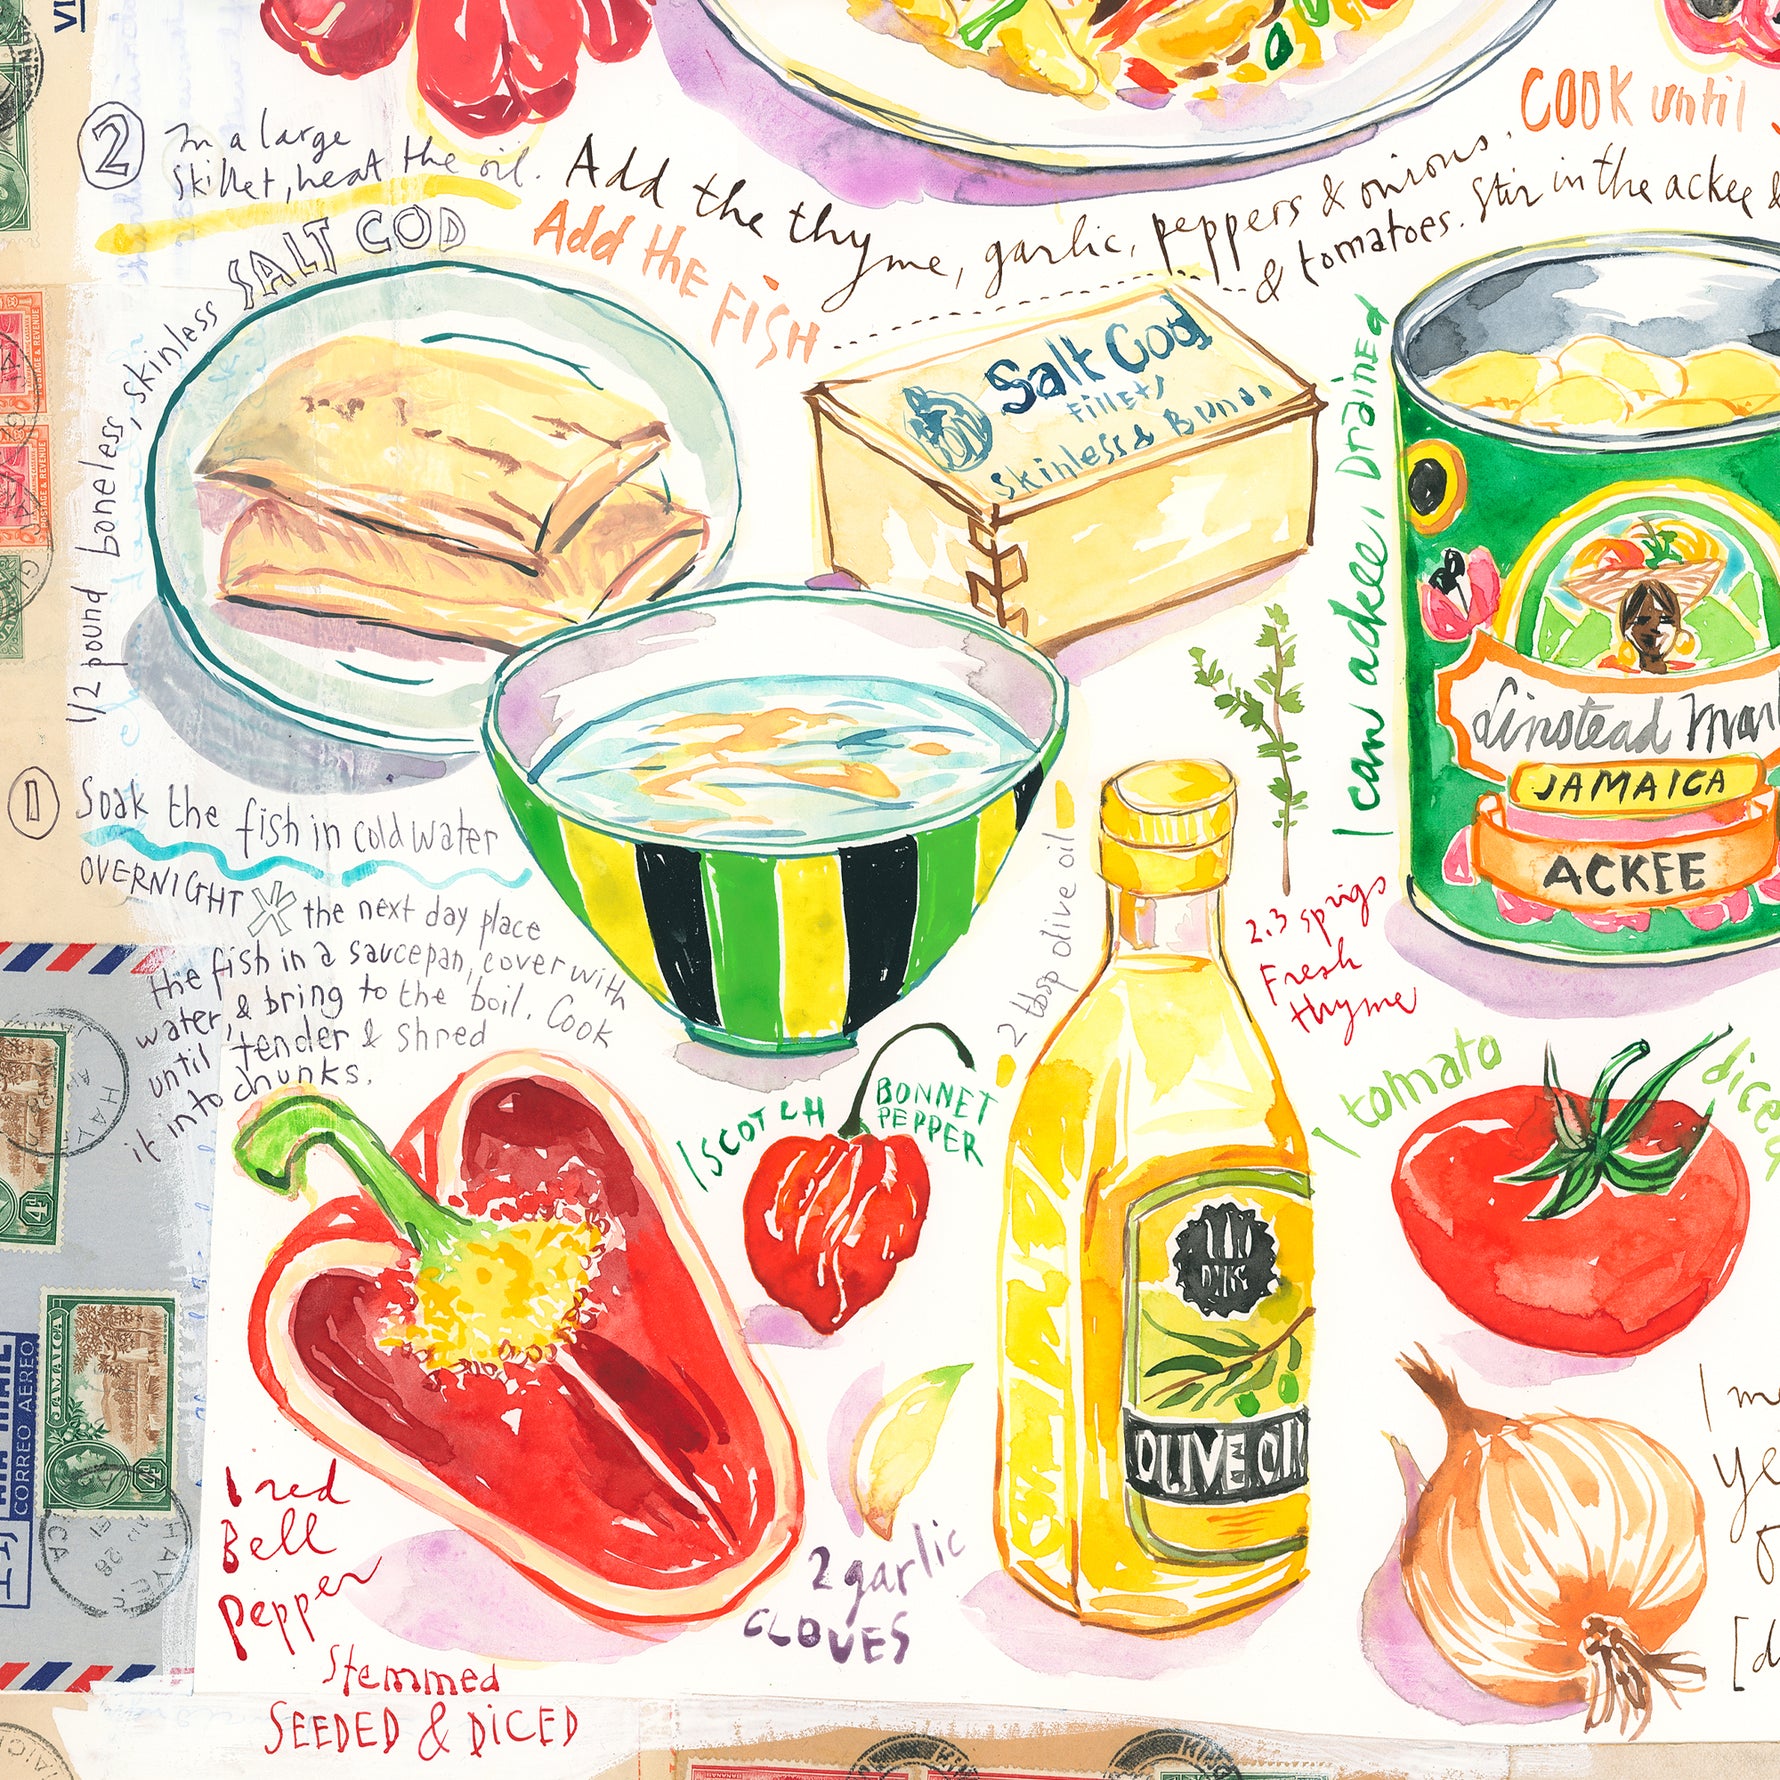 ② In a large
skillet, heat the oil.
Add the thyme, garlic, peppers & onions.
COOK until
Add the FiSH
& tomatoes. Stir in the ackee &
1/2 pound boneless, skinless SALT COD
Salt Cod
Fillets
Skinless &
1 can ackee, Drained
Linstead
JAMAICA
ACKEE
① Soak the fish in cold water
OVERNIGHT * the next day place
the fish in a saucepan, cover with
water, & bring to the boil. Cook
until tender & shred
it into chunks.
2 tbsp olive oil
2.3 sprigs
Fresh
thyme
1 SCOTCH BONNET
PEPPER
1 tomato diced
OLIVE OIL
1 red
Bell
Pepper
Stemmed
SEEDED & DiCED
2 garlic
CLOVES
CORREO AEREO
JAMAICA
POSTAGE & REVENUE
POSTAGE & REVENUE